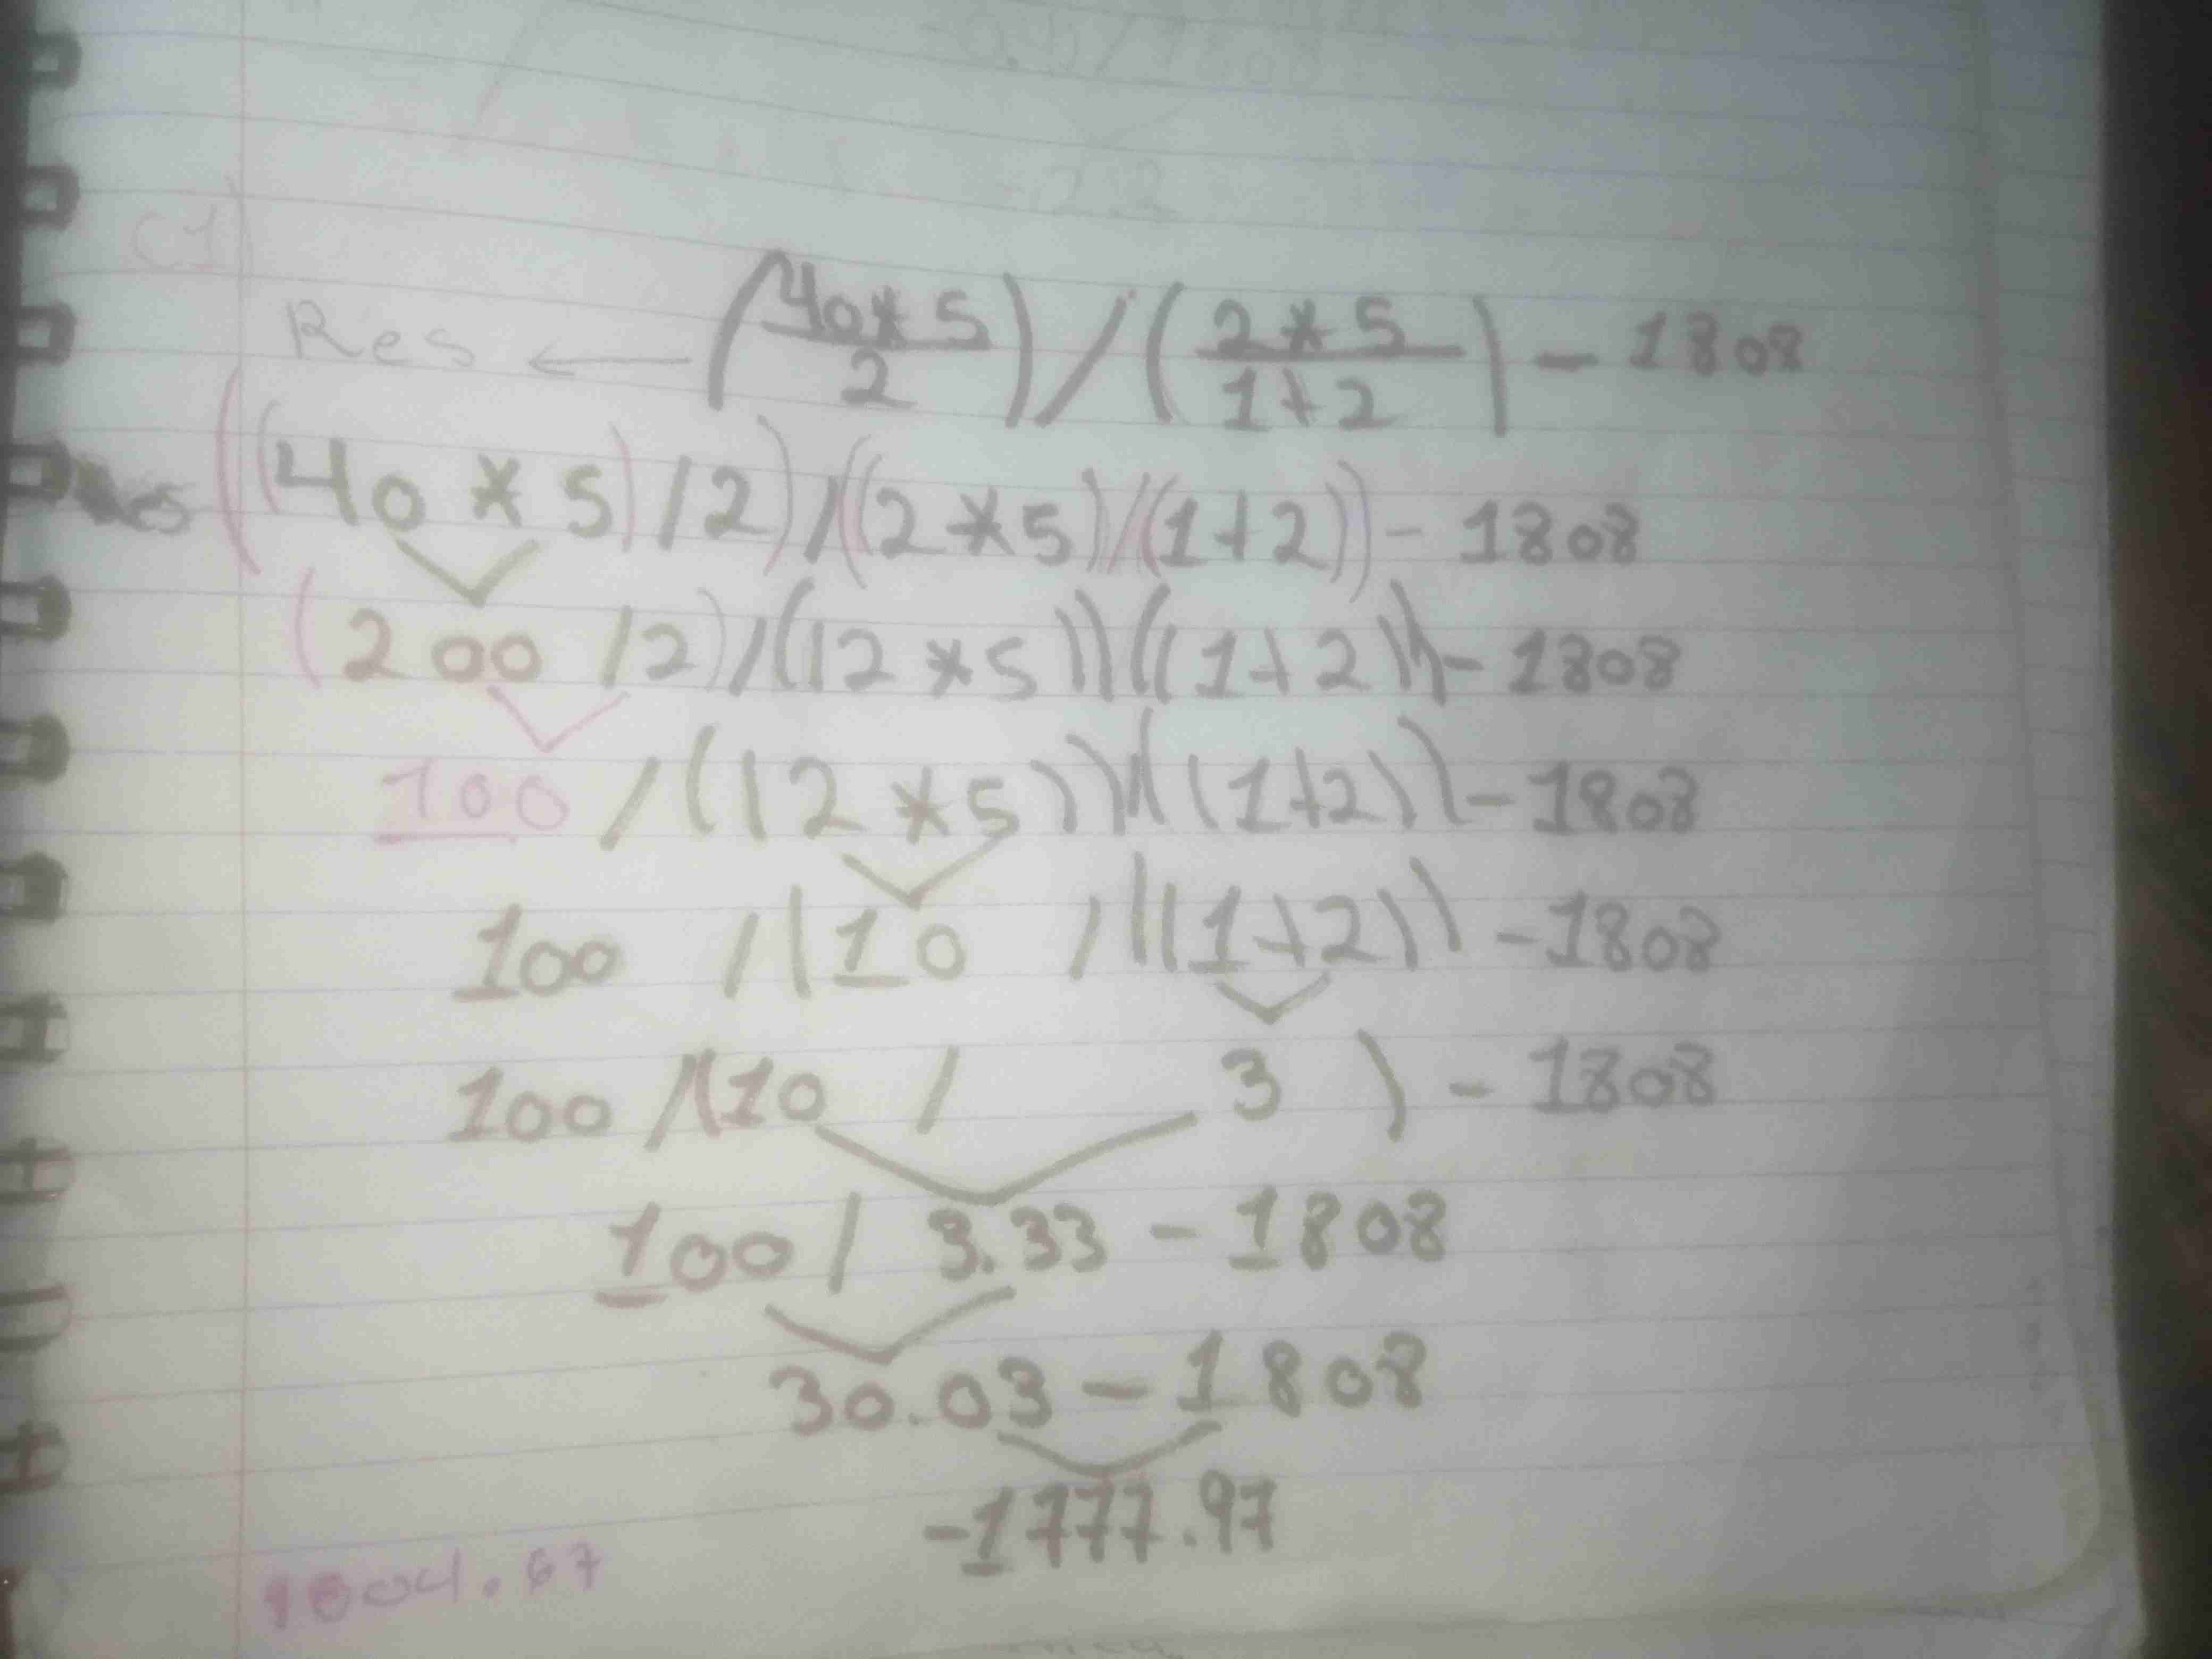 C1
Res ← (40*5/2)/(2*5/1+2) - 1808
Res ((40*5)/2)/((2*5)/(1+2)) - 1808
(200/2)/((2*5))/((1+2)) - 1808
100/((2*5))/((1+2)) - 1808
100/(10/((1+2)) - 1808
100/(10/3) - 1808
100/3.33 - 1808
30.03 - 1808
-1777.97
1804.67